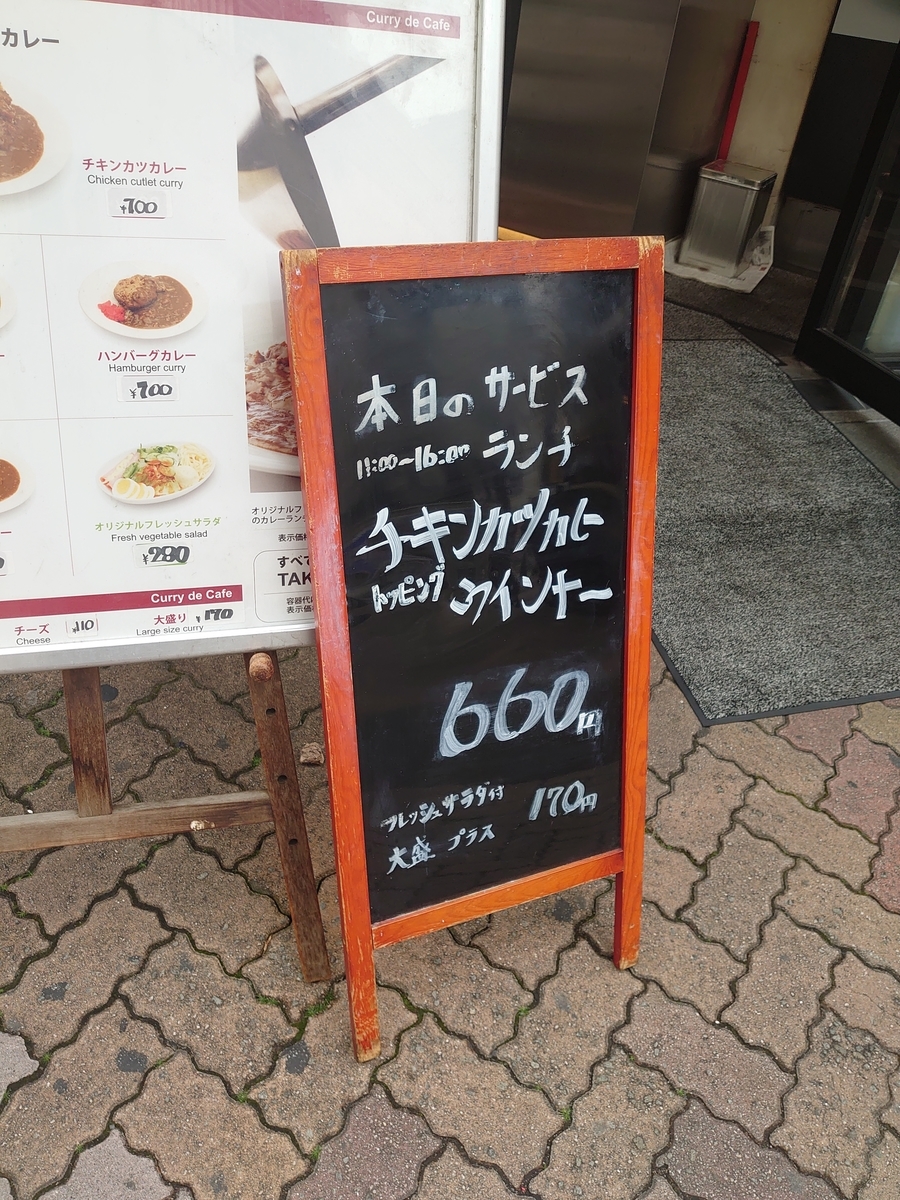 Curry de Cafe
カレー
チキンカツカレー
Chicken cutlet curry
¥700
ハンバーグカレー
Hamburger curry
¥700
オリジナルフレッシュサラダ
Fresh vegetable salad
¥280
Curry de Cafe
チーズ
Cheese
¥110
大盛り
Large size curry
¥170
オリジナルフ
のカレーラン
表示価
すべ
TAK
容器代
表示価
本日のサービス
11:00~16:00 ランチ
チキンカツカレー
トッピング ウインナー
660円
フレッシュサラダ付
大盛 プラス 170円